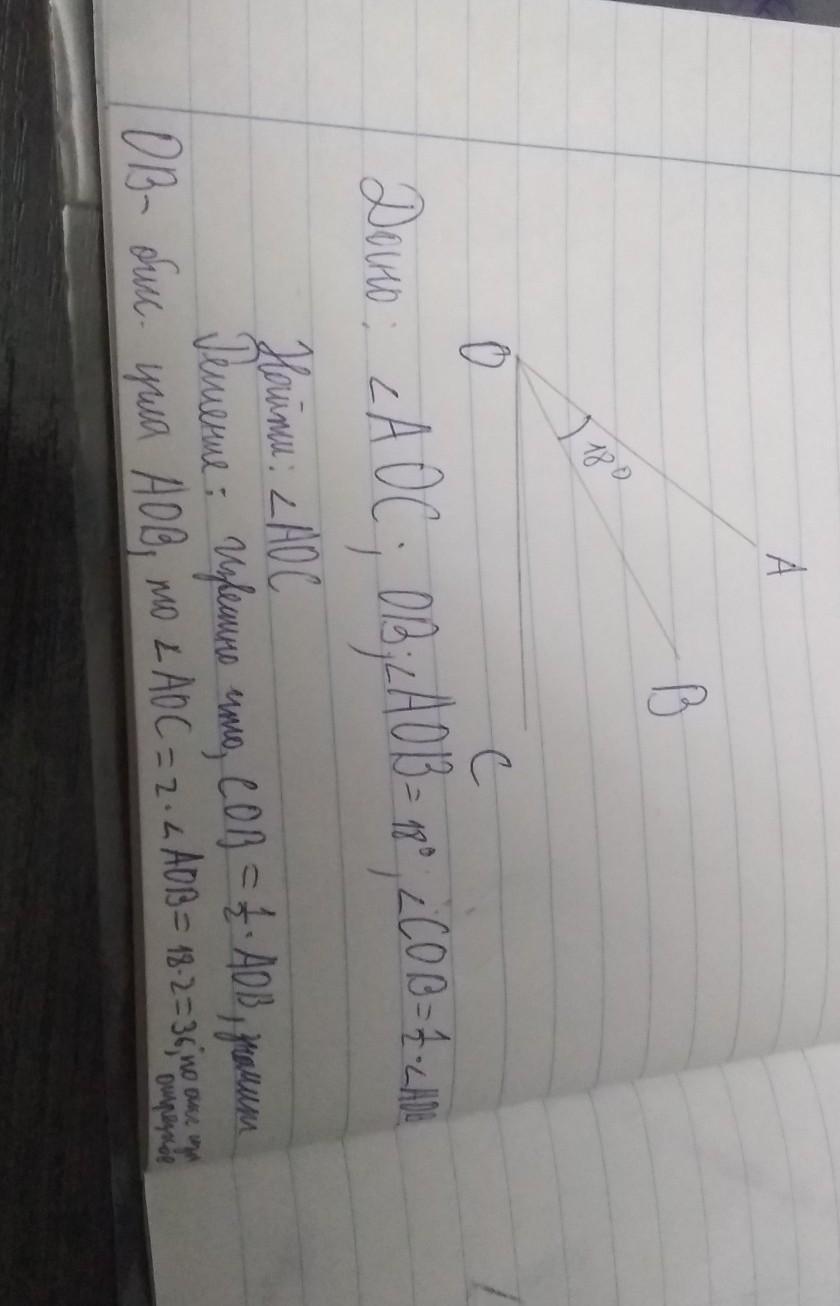 A
B
18°
O
C
Дано: ∠AOC; OB; ∠AOB = 18°, ∠COB = 1/2 · ∠AOB
Найти: ∠AOC
Решение: известно что, COB = 1/2 · AOB, значит
OB - бис. угла AOB, то ∠AOC = 2 · ∠AOB = 18 · 2 = 36, по